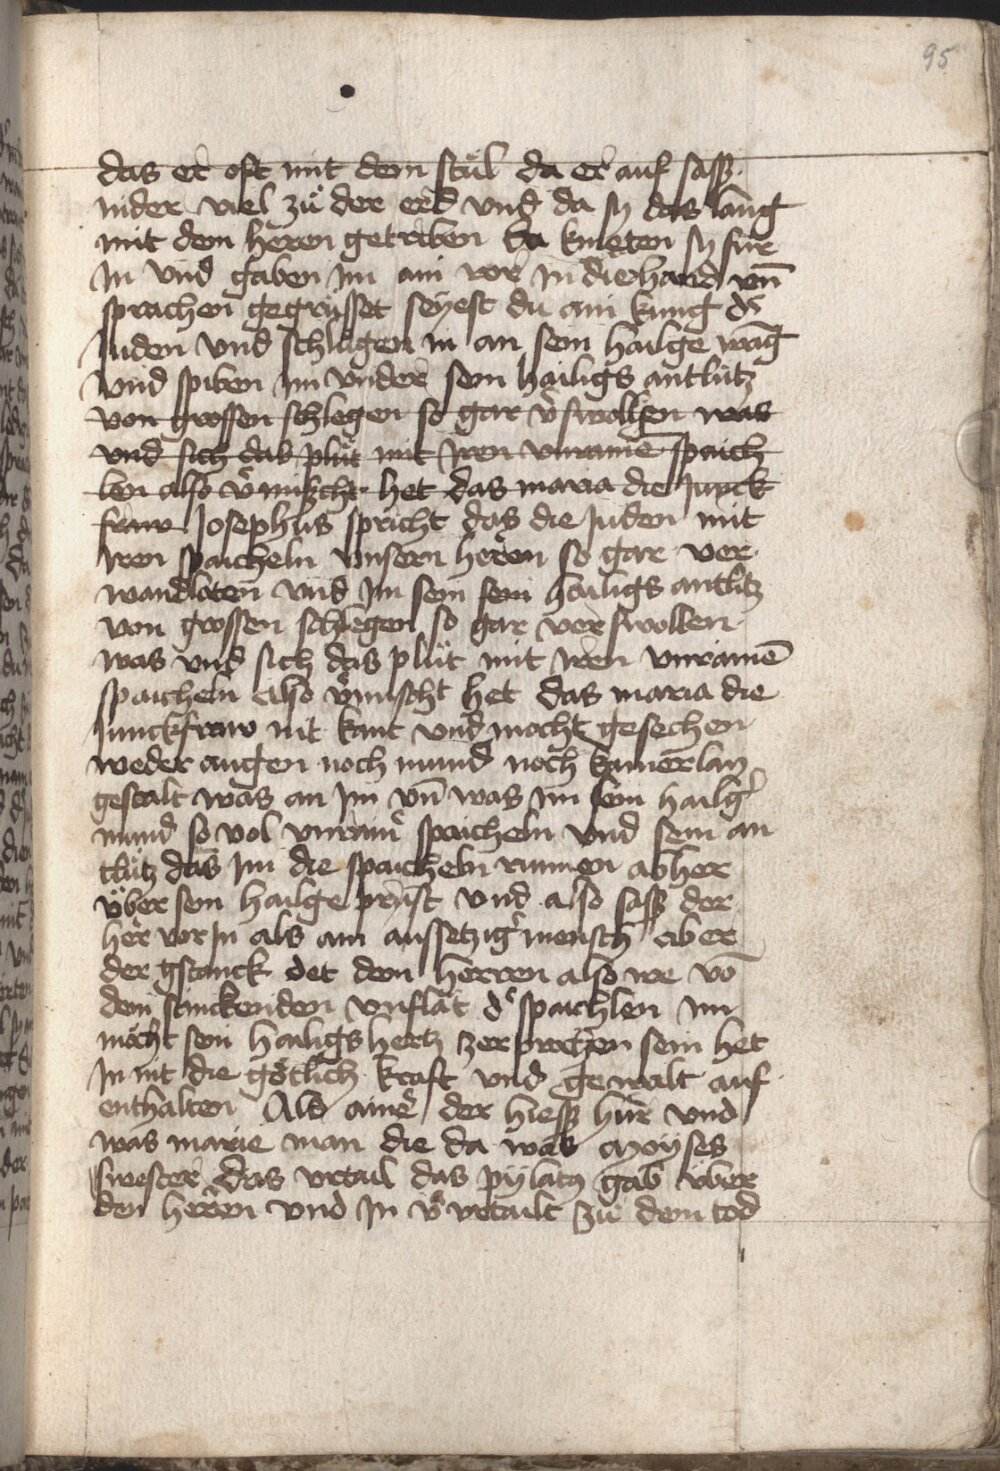 95
das er oft mit dem stůl da er auf sass
nider viel zů der erd vnd da sy das lang
mit dem heren getriben da knieten sy für
In vnd gaben im ain ror In die hand vn̄
sprachen gegrüsset seyest du ain kunig d'
Juden vnd schlůgen in an sein hailge wāg
vnd spiben im vnder sein hailigs antlütz
von grossen schlegen so gar v'swollen was
vnd sich das plůt mit iren vnrainē spaich
len also v'mischt het das maria die Junck
fraw Josephus spricht das die Juden mit
iren spaicheln vnsern heren so gar ver
wandloten vnd Im sein sein hailigs antlitz
von grossen schlegen so gar verswollen
was vnd sich das plůt mit iren vnrainē
spaicheln also v'mischt het das maria die
Junckfraw nit kant vnd mocht gesechen
weder augen noch mund noch kainerlay
gestalt was an im vn̄ was im sein hailg'
mund so vol vnrain' spaicheln vnd sein an
tlütz das Im die spaicheln runnen abher
über sein hailge prust vnd also sass der
her vor In als ain aussetzig' mensch aber
der gstanck det dem herren also we vō
dem stinckenden vnflat d' spaichlen im
möcht sein hailigs hertz zerprochen sein het
In nit die götlich kraft vnd gewalt auf
enthalten Als ainer der hiess hur vnd
was marie man die da was moyses
swester das vrtail das pylatus gab über
den heren vnd In v'urtailt zů dem tod